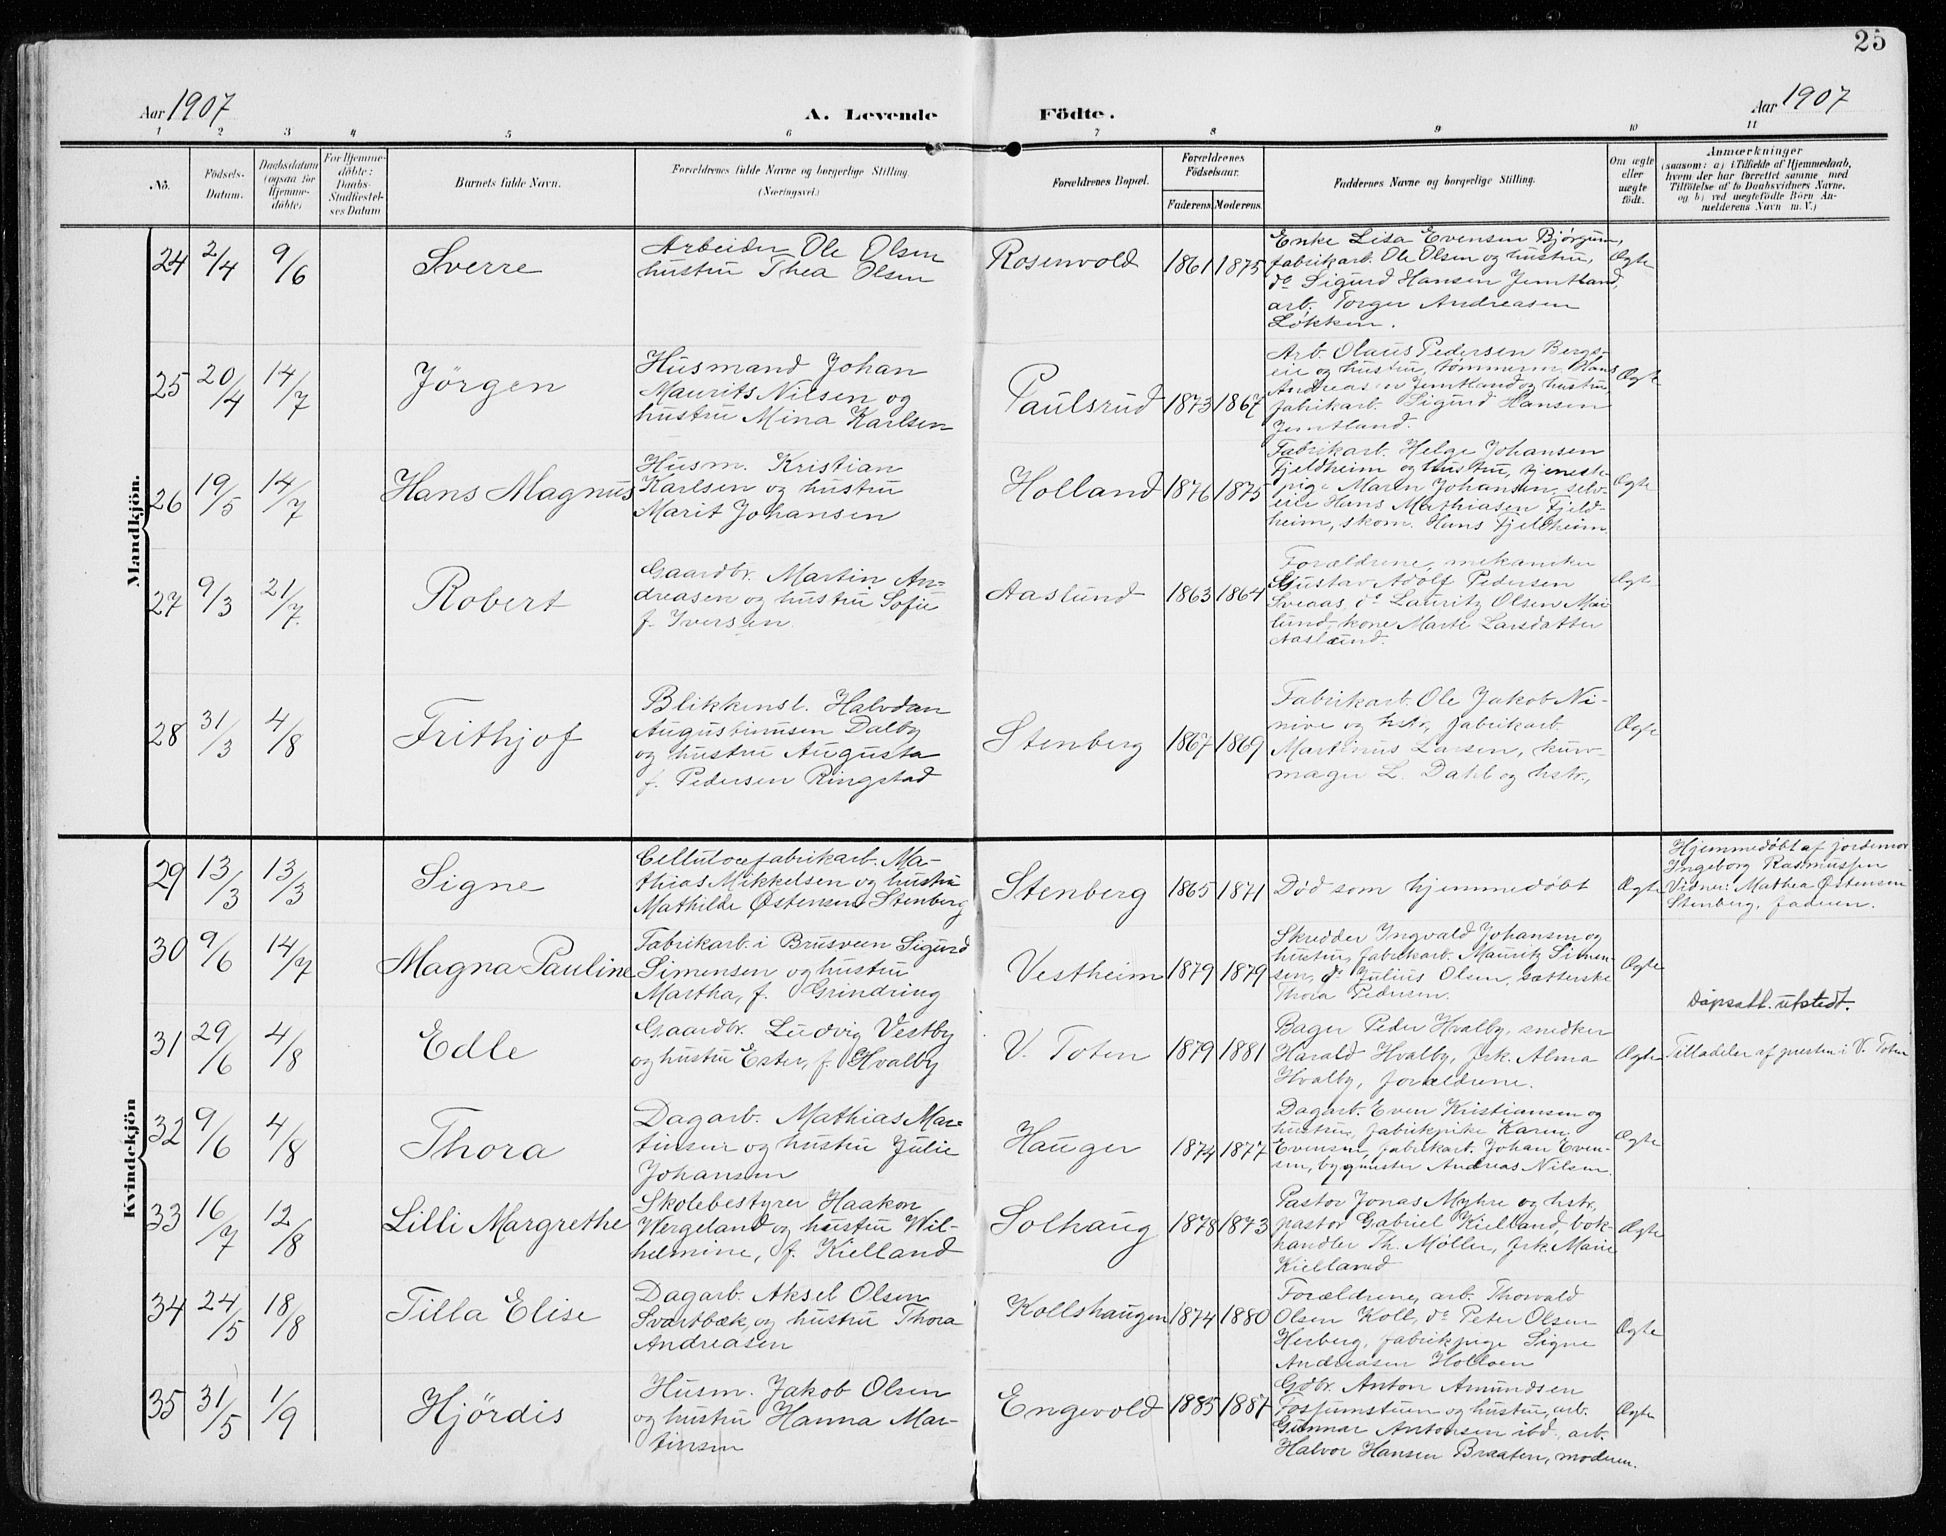 25
Aar 1907
A. Levende Födte.
Aar 1907
1 2 3 4 5 6 7 8 9 10 11
No.
Födsels-
Datum.
Daabsdatum
(ogsaa for
Hjemme-
döbte)
For Hjemme-
döbte:
Daabs-
Stadfæstel-
ses Datum
Barnets fulde Navn.
Forældrenes fulde Navne og borgerlige Stilling.
(Næringsvei.)
Forældrenes Bopæl.
Forældrenes
Födselsaar.
Faderens. Moderens.
Faddernes Navne og borgerlige Stilling.
Om ægte
eller
uægte
födt.
Anmærkninger
(saasom: a) i Tilfælde af Hjemmedaab,
hvem der har forrettet samme med
Tilföielse af to Daabsvidners Navne,
og b) ved uægtefödte Börn An-
melderens Navn m. V.)
Mandkjön.
24 2/4 9/6 Sverre
Arbeider Ole Olsen
hustru Thea Olsen
Rosenvold 1861 1875
Enke Lisa Evensen Bjørgum,
fabrikarb. Ole Olsen og hustru,
do Sigurd Hansen Jemtland,
arb. Torger Andreasen
Løkken.
Ægte
25 20/4 14/7 Jörgen
Husmand Johan
Maurits Nilsen og
hustru Mina Karlsen
Paulsrud 1873 1867
Arb. Olaus Pedersen Bergs-
eie og hustru, tømmerm. Hans
Andreasen Jemtland og hustru,
fabrikarb. Sigurd Hansen
Jemtland.
Ægte
26 19/5 14/7 Hans Magnus
Husm. Kristian
Karlsen og hustru
Marit Johansen
Holland 1876 1875
Fabrikarb. Helge Johansen
Fjeldheim og hustru, tjeneste-
pige Maren Johansen, selv-
eier Hans Mathiasen Fjeld-
heim, skom. Hans Fjeldheim
Ægte
27 9/3 21/7 Robert
Gaardbr. Martin An-
dreasen og hustru Sofie
f. Iversen
Aaslund 1863 1864
Forældrene, mekaniker
Gustav Adolf Pedersen
Sveaas, do Lauritz Olsen Mai-
lund, kone Marte Larsdatter
Aaslund.
Ægte
28 31/3 4/8 Frithjof
Blikkensl. Halvdan
Augustinusen Dalby
og hustru Augusta
f. Pedersen Ringstad
Stenberg 1867 1869
Fabrikarb. Ole Jakob Ni-
nive og hstr, fabrikarb.
Martinus Larsen, kur-
mager L. Dahl og hstr,
Ægte
Kvindekjön
29 13/3 13/3 Signe
Cellulosefabrikarb. Ma-
thias Mikkelsen og hustru
Mathilde Østensen Stenberg
Stenberg 1865 1871
Død som hjemmedøbt
Ægte
Hjemmedøbt af jordemor
Ingeborg Rasmussen
Vidner: Mathea Østensen
Stenberg, faderen.
30 9/6 14/7 Magna Pauline
Fabrikarb. i Brusveen Sigurd
Simensen og hustru
Martha, f. Grindring
Vestheim 1879 1879
Skrædder Ingvald Johansen og
hustru, fabrikarb. Mauritz Simen-
sen, do Julius Olsen, sætterske
Thora Pedersen.
Ægte
Dåpsatt. utstedt.
31 29/6 4/8 Edle
Gaardbr. Ludvig Vestby
og hustru Ester, f. Hvalby
V. Toten 1879 1881
Bager Peder Hvalby, snedker
Harald Hvalby, frk. Alma
Hvalby, forældrene.
Ægte
Tilladelse af presten i V. Toten
32 9/6 4/8 Thora
Dagarb. Mathias Mar-
tinsen og hustru Julie
Johansen
Hauger 1874 1877
Dagarb. Even Kristiansen og
hustru, fabrikpike Karen
Evensen, fabrikarb. Johan Even-
sen, bygmester Andreas Nilsen.
Ægte
33 16/7 12/8 Lilli Margrethe
Skolebestyrer Haakon
Wergeland og hustru Wil-
helmine, f. Kielland
Solhaug 1878 1873
Pastor Jonas Myhre og hstr,
pastor Gabriel Kielland, bok-
handler Th. Møller, frk. Marie
Kielland
Ægte
34 24/5 18/8 Tilla Elise
Dagarb. Aksel Olsen
Svartbæk og hustru Thora
Andreasen
Kollshaugen 1874 1880
Forældrene, arb. Thorvald
Olsen Koll, do Peter Olsen
Herberg, fabrikpige Signe
Andreasen Holloen
Ægte
35 31/5 1/9 Hjördis
Husm. Jakob Olsen
og hustru Hanna Mar-
tinsen
Engevold 1885 1887
Gdbr. Anton Amundsen
Fossumstuen og hustru, arb.
Gunnar Antonsen ibd, arb.
Halvor Hansen Braaten, moderen.
Ægte